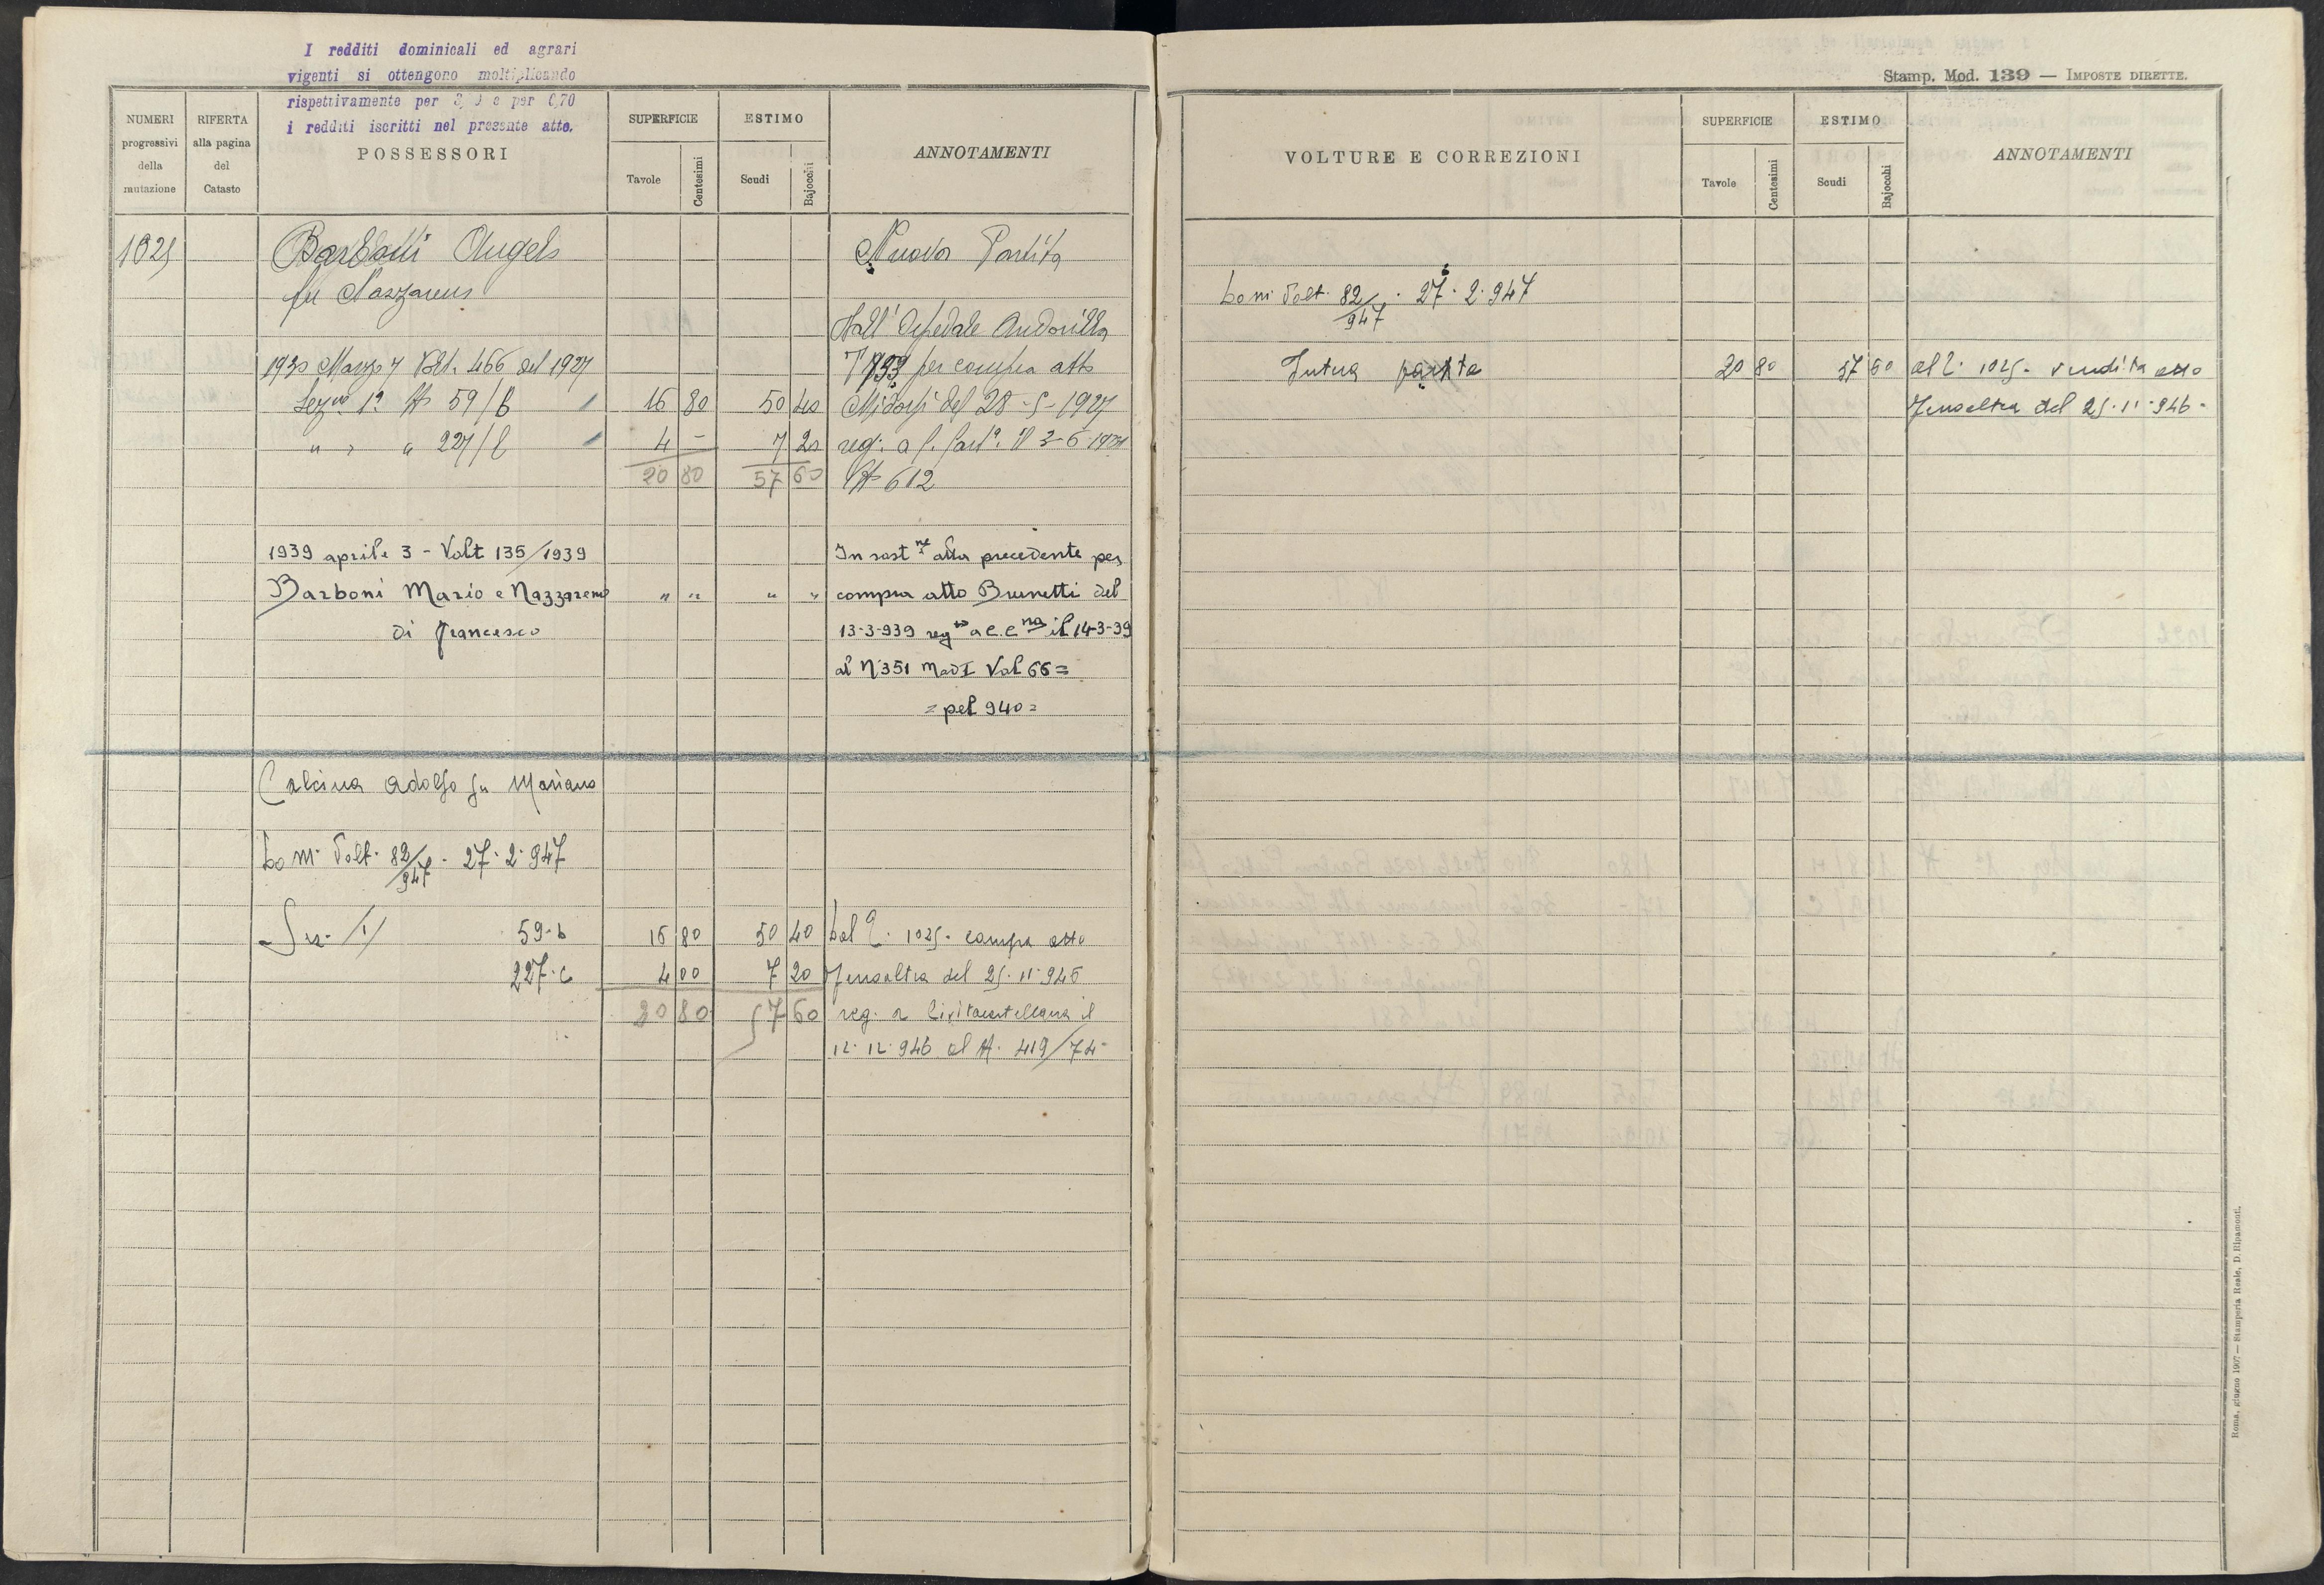 I redditi dominicali ed agrari
vigenti si ottengono moltiplicando
rispettivamente per e per 0,70
i redditi iscritti nel presente atto.
NUMERI
progressivi
della
mutazione
RIFERTA
alla pagina
del
Catasto
POSSESSORI
SUPERFICIE
Tavole
Centesimi
ESTIMO
Scudi
Bajocchi
ANNOTAMENTI
1025 Angelo Nuova Partita
fu Nazzareno
Dall' Ospedale
1930 Marzo 7 Volt. 466 del 1927 per compra atto
Sez.ne 1ª N 59/B 16 80 50 40 del 28-5-1927
" " " 227/ 4 - 7 20 reg. a il 3-6-1927
20 80 57 60 N 612
1939 aprile 3 - Volt 135/1939 In sost.ne alla precedente per
Barboni Mario e Nazzareno " " " " compra atto Brunetti del
di Francesco 13-3-939 reg.to a C.C.na il 14-3-39
al N 351 Mod I Vol 66 =
= pel 940 =
Calcina Adolfo fu Mariano
Com. Volt. 82/947 . 27.2.947
Sez. 1/ 59-b 16 80 50 40 Dal 1025. compra atto
227-c 4 00 7 20 del 25.11.946
20 80 57 60 reg. a Civitacastellana il
12.12.946 al N. 419/74
Stamp. Mod. 139 — IMPOSTE DIRETTE.
VOLTURE E CORREZIONI
SUPERFICIE
Tavole
Centesimi
ESTIMO
Scudi
Bajocchi
ANNOTAMENTI
Com. Volt. 82/947 . 27.2.947
Intera partita 20 80 57 60 al 1025. vendita atto
del 25.11.946.
Roma, giugno 1907 — Stamperia Reale, D. Ripamonti.